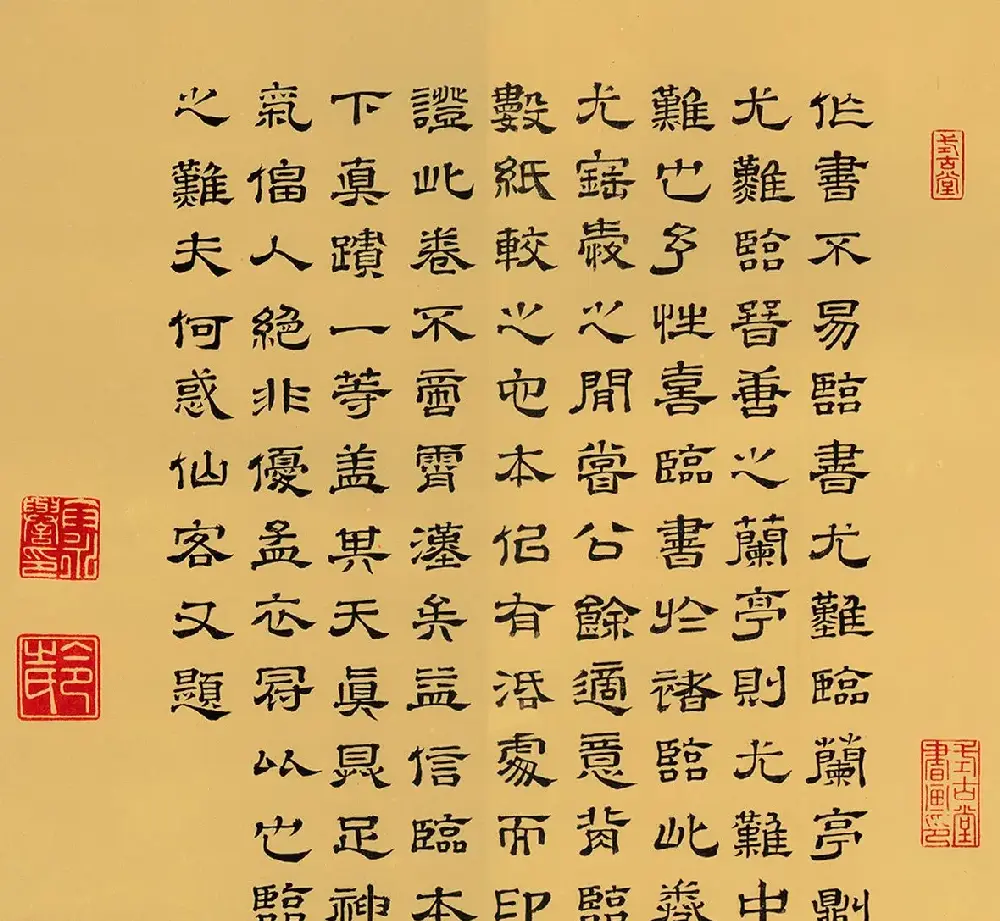 作書不易臨書尤難臨蘭亭則
尤難臨晉善之蘭亭則尤難中
難也予性喜臨書於褚臨此卷
尤寤寐之間嘗公餘適意背臨
數紙較之他本佀有活處而印
證此卷不啻霄漢矣益信臨本
下真蹟一等盖其天真具足神
氣偪人絕非優孟衣冠以也臨
之難夫何惑仙客又題
式古堂
式古堂書畫印
卞永譽印